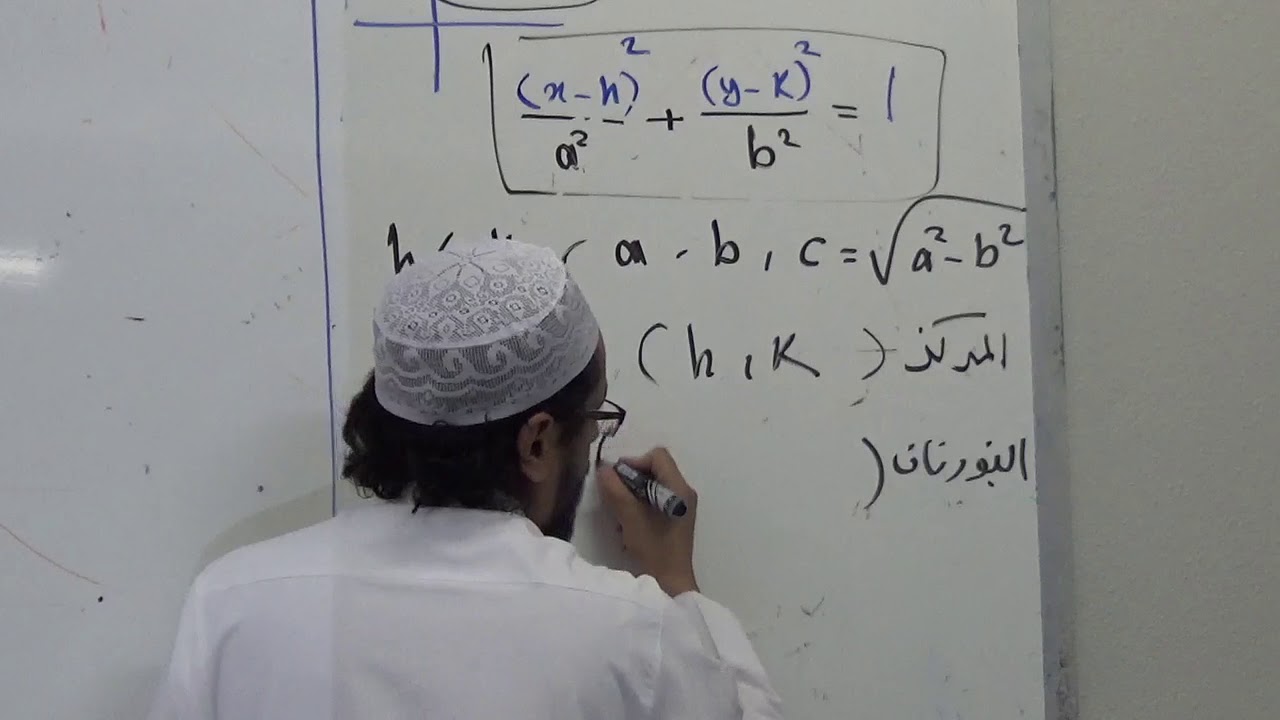 (x-h)²/a² + (y-k)²/b² = 1
h , a , b , c = √a²-b²
المركز (h, k)
البؤرتان (